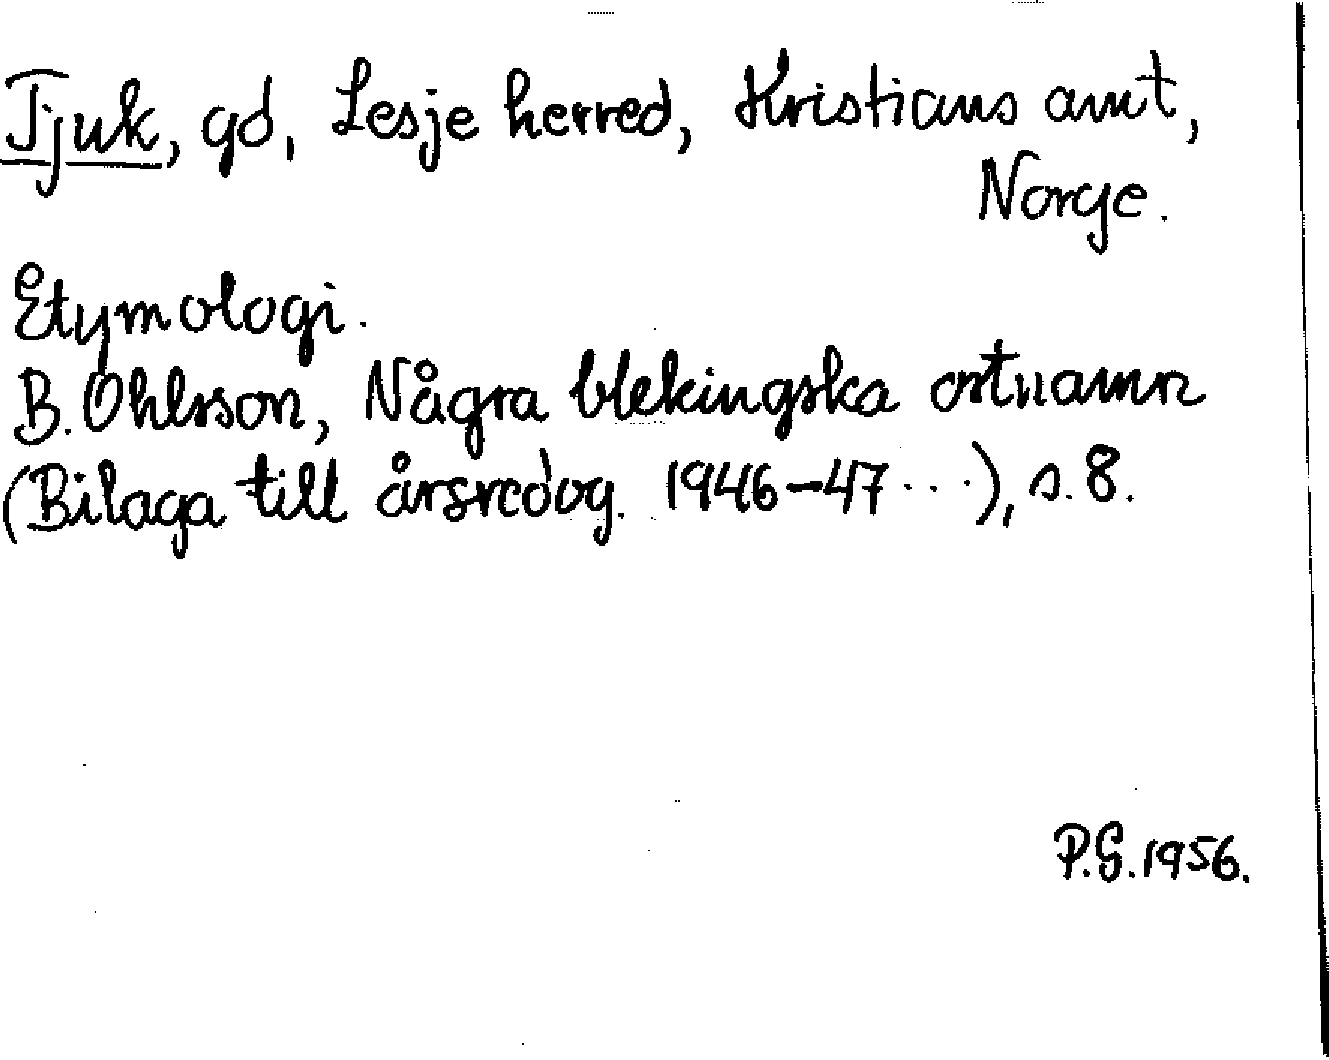 Tjuk, gd, Lesje herred, Kristians amt,
Norge.
Etymologi.
B. Ohlsson, Några blekingska ortnamn
(Bilaga till årsredog. 1946-47 ...), s. 8.
P.G. 1956.